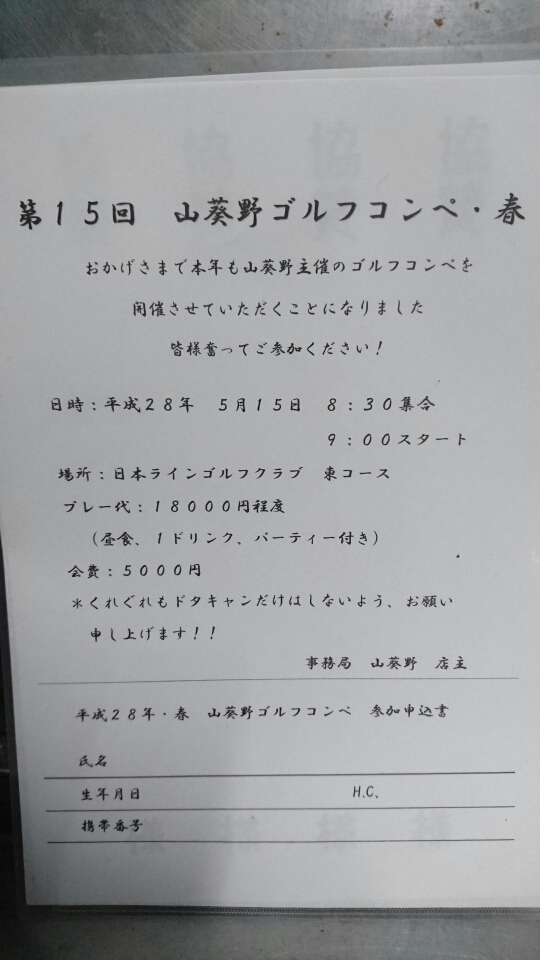 第１５回　山葵野ゴルフコンペ・春
おかげさまで本年も山葵野主催のゴルフコンペを
開催させていただくことになりました
皆様奮ってご参加ください！
日時：平成２８年　５月１５日　８：３０集合
９：００スタート
場所：日本ラインゴルフクラブ　東コース
プレー代：１８０００円程度
（昼食、１ドリンク、パーティー付き）
会費：５０００円
＊くれぐれもドタキャンだけはしないよう、お願い
申し上げます！！
事務局　山葵野　店主
平成２８年・春　山葵野ゴルフコンペ　参加申込書
氏名
生年月日　H.C.
携帯番号